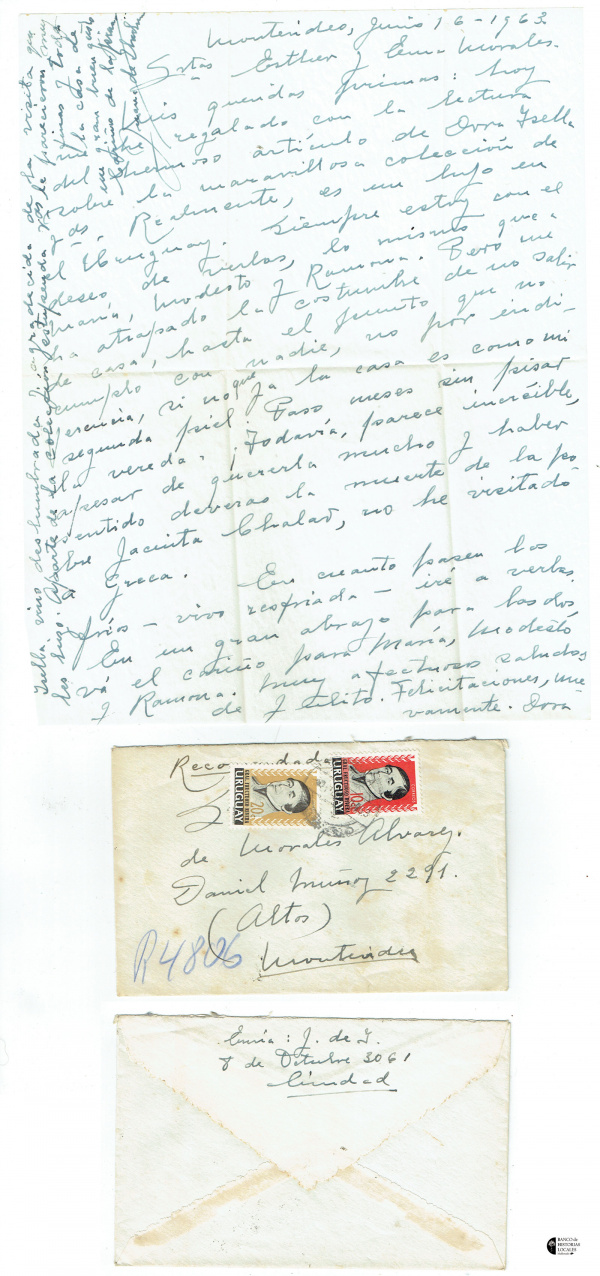 Montevideo, Junio 16-1963
Stas Esther y Ema Morales.
Mis queridas primas: hoy
me he regalado con la lectura
del hermoso artículo de Dora Isella
sobre la maravillosa colección de
Vds. Realmente, es un lujo en
el Uruguay. Siempre estoy con el
deseo de verlas, lo mismo que a
María, Modesto y Ramona. Pero me
ha atrapado la costumbre de no salir
de casa, hasta el punto que no
cumplo con nadie, no por indi-
ferencia, si no que ya la casa es como mi
segunda piel. Paso meses sin pisar
la vereda. ¡Todavía, parece increíble,
apesar de quererla mucho y haber
sentido deveras la muerte de la po
bre Jacinta Chalar, no he visitado
a Greca. En cuanto pasen los
fríos - vivo resfriada - iré a verlas.
En un gran abrazo para las dos
vá el cariño para María, Modesto
y Ramona. Muy afectuosos saludos
de J. Felicitaciones, nue
vamente.
Isella vino deslumbrada y agradecida de la visita que
les hizo. Aparte de la colección estupenda, Vds. le parecieron muy
finas y toda
la casa de
un gran buen gusto
Cariños de
Recomendada
URUGUAY
20c
URUGUAY
10c
de Morales Alvarez.
Daniel Muñoz 2291.
(Altos)
Montevideo
R4806
Envía: J. de I.
8 de Octubre 3061
Ciudad
BANCO de
HISTORIAS
LOCALES